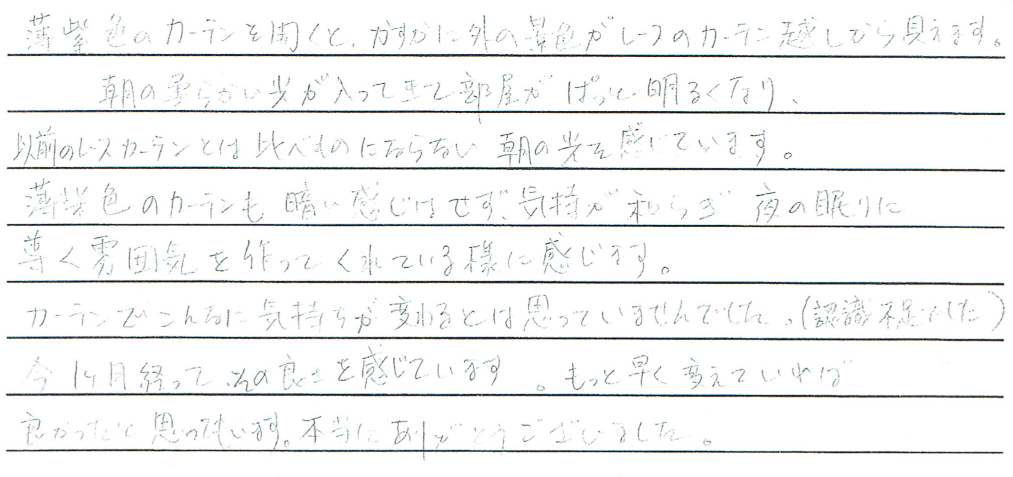 薄紫色のカーテンを開くと、かすかに外の景色がレースのカーテン越しから見えます。
朝の柔らかい光が入って来て部屋がぱっと明るくなり、
以前のレースカーテンとは比べものにならない朝の光を感じています。
薄紫色のカーテンも暗い感じはせず、気持が和らぎ夜の眠りに
導く雰囲気を作ってくれている様に感じます。
カーテンでこんなに気持ちが変わるとは思っていませんでした。(認識不足でした)
今1ヶ月経って、その良さを感じています。もっと早く変えていれば
良かったと思っています。本当にありがとうございました。